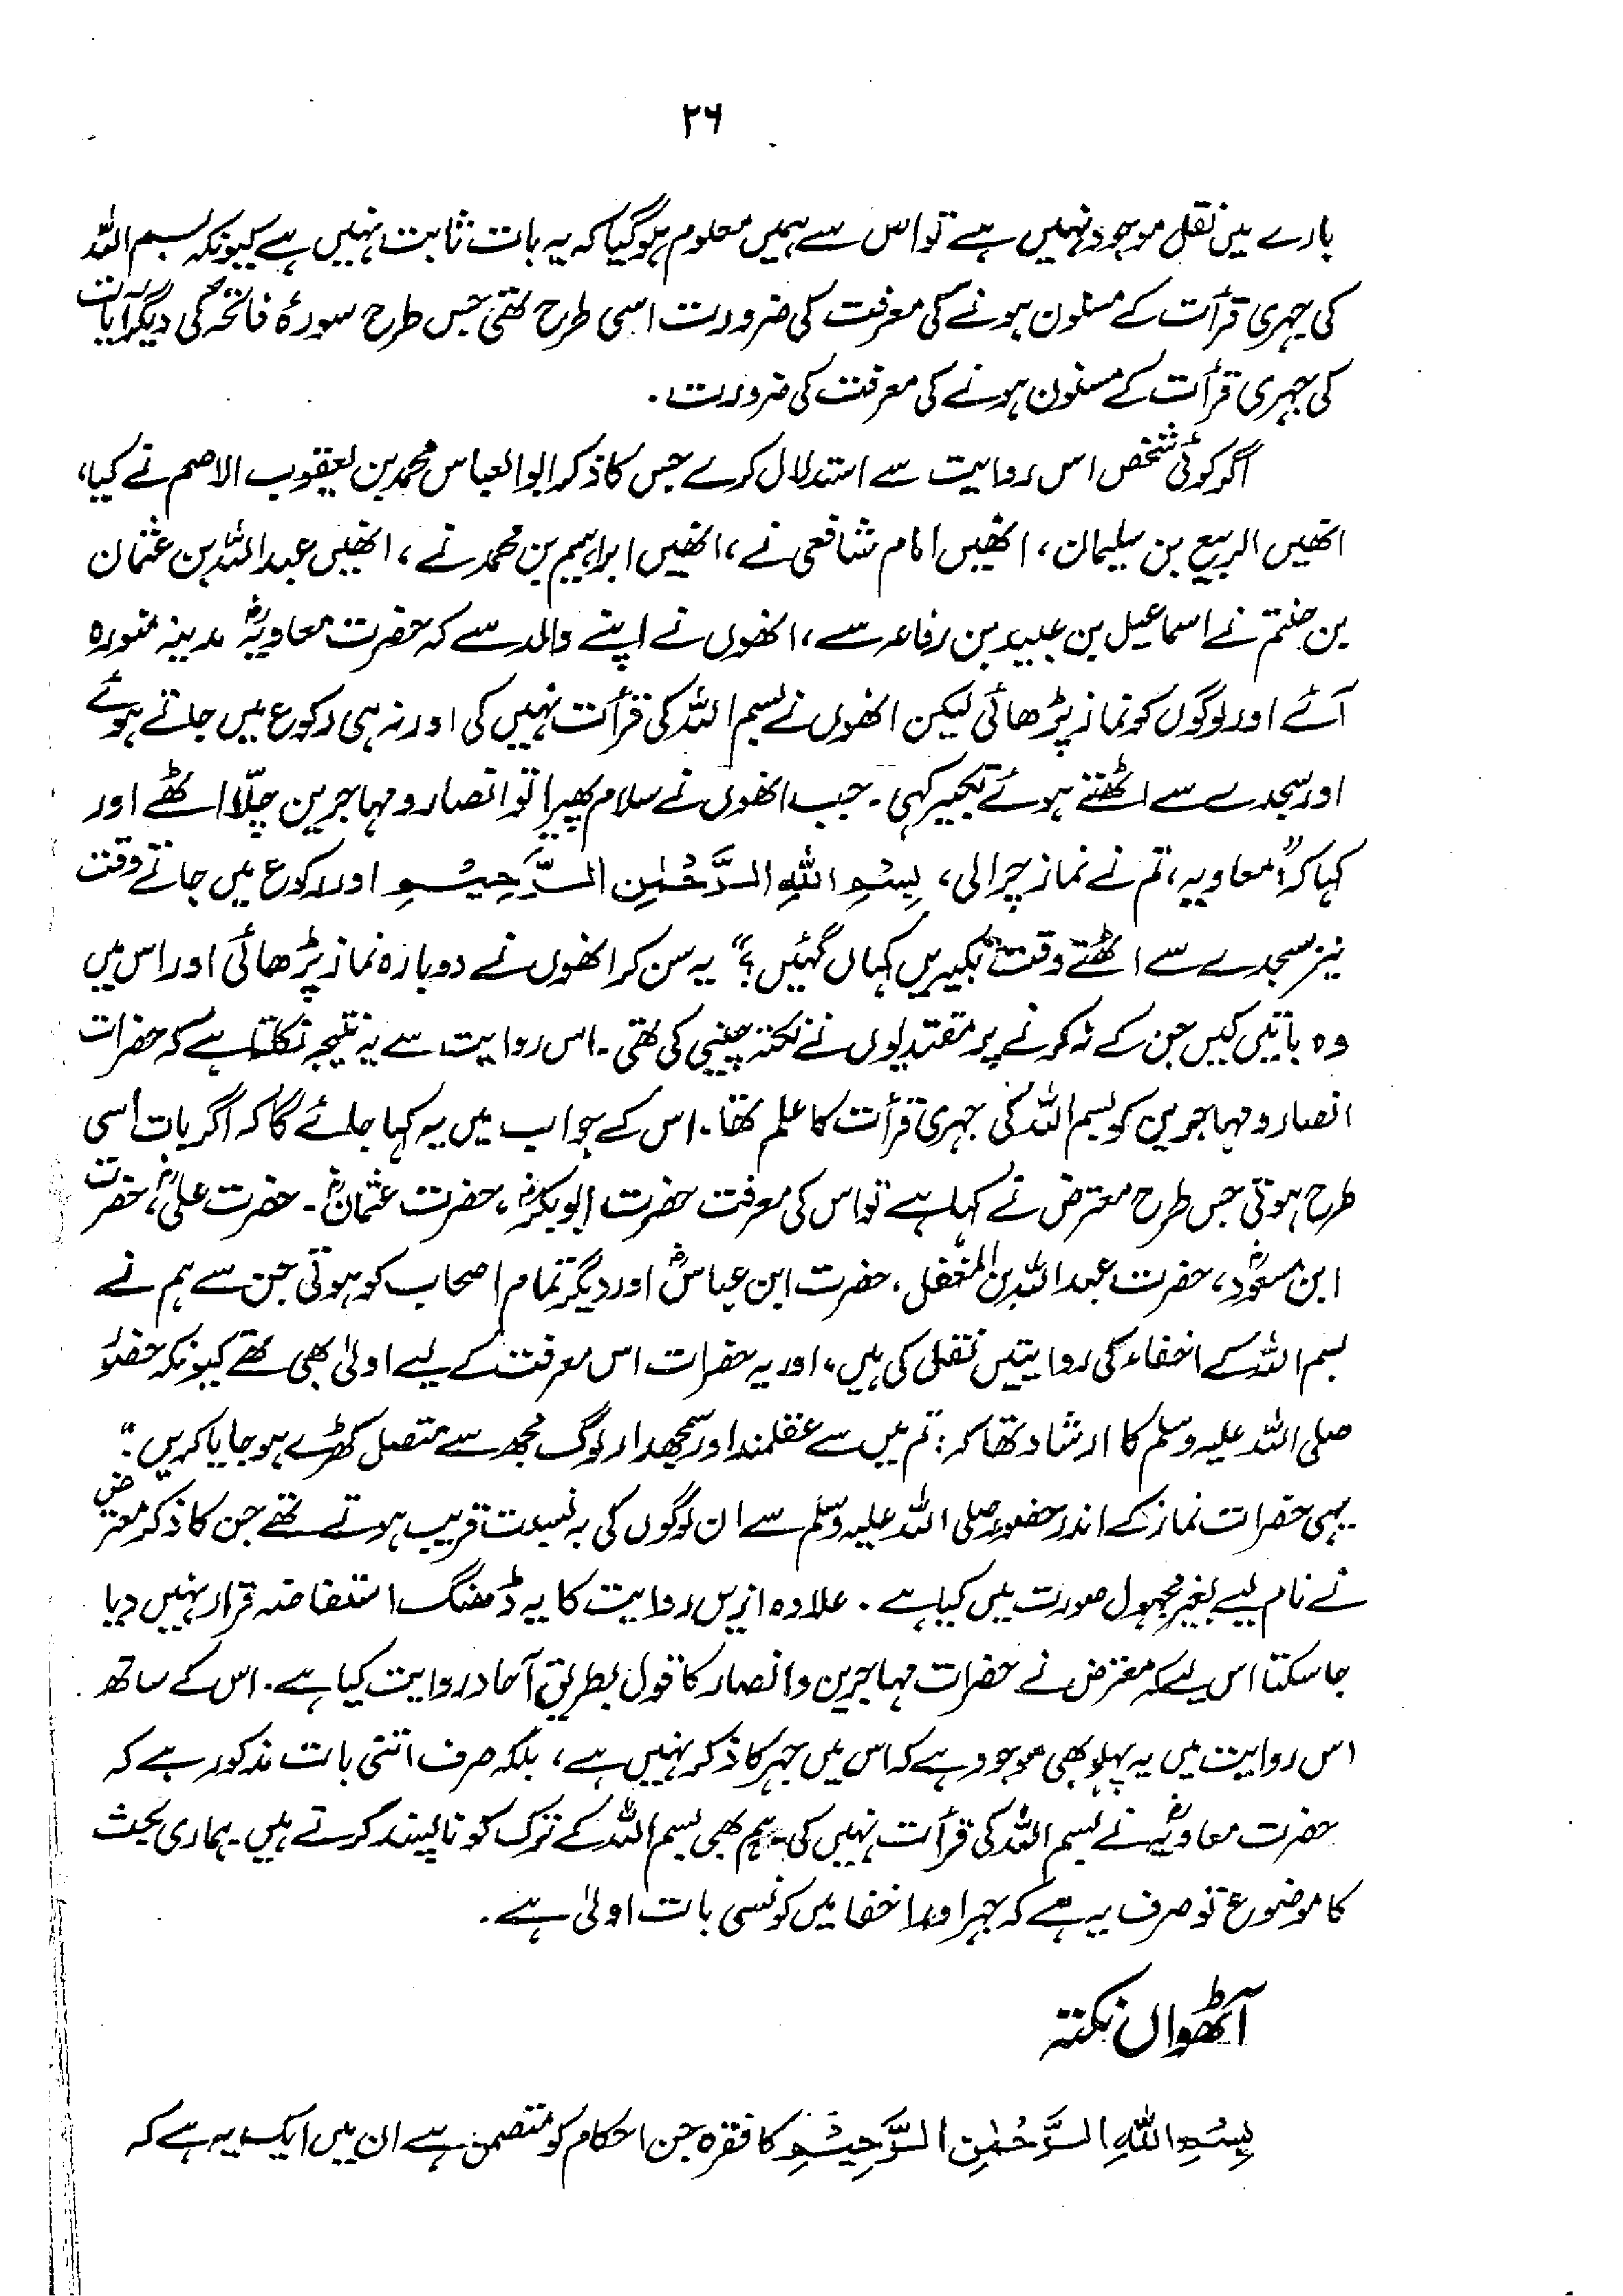 ۲۶
بارے میں نقل موجود نہیں ہے تو اس سے ہمیں معلوم ہوگیا کہ یہ بات ثابت نہیں ہے کیونکہ بسم اللہ
کی جہری قرأت کے مسنون ہونے کی معرفت کی ضرورت اسی طرح تھی جس طرح سورۂ فاتحہ کی دیگر آیات
کی جہری قرأت کے مسنون ہونے کی معرفت کی ضرورت۔
اگر کوئی شخص اس روایت سے استدلال کرے جس کا ذکر ابوالعباس محمد بن یعقوب الاصم نے کیا،
انھیں الربیع بن سلیمان، انھیں امام شافعی نے، انھیں ابراہیم بن محمد نے، انھیں عبداللہ بن عثمان
بن خثیم نے اسماعیل بن عبید بن رفاعہ سے، انھوں نے اپنے والد سے کہ حضرت معاویہؓ مدینہ منورہ
آئے اور لوگوں کو نماز پڑھائی لیکن انھوں نے بسم اللہ کی قرأت نہیں کی اور نہ ہی رکوع میں جاتے ہوئے
اور سجدے سے اٹھتے ہوئے تکبیر کہی۔ جب انھوں نے سلام پھیرا تو انصار و مہاجرین چلّا اٹھے اور
کہا کہ "معاویہ، تم نے نماز چرالی، بِسْمِ اللّٰہِ الرَّحْمٰنِ الرَّحِیْمِ اور رکوع میں جاتے وقت
نیز سجدے سے اٹھتے وقت تکبیریں کہاں گئیں؟" یہ سن کر انھوں نے دوبارہ نماز پڑھائی اور اس میں
وہ باتیں کیں جن کے نہ کرنے پر مقتدیوں نے نکتہ چینی کی تھی۔ اس روایت سے یہ نتیجہ نکلتا ہے کہ حضرات
انصار و مہاجرین کو بسم اللہ کی جہری قرأت کا علم تھا۔ اس کے جواب میں یہ کہا جائے گا کہ اگر بات اسی
طرح ہوتی جس طرح معترض نے کہا ہے تو اس کی معرفت حضرت ابوبکرؓ، حضرت عثمانؓ۔ حضرت علیؓ، حضرت
ابن مسعودؓ، حضرت عبداللہ بن المغفل، حضرت ابن عباسؓ اور دیگر تمام اصحاب کو ہوتی جن سے ہم نے
بسم اللہ کے اخفاء کی روایتیں نقل کی ہیں، اور یہ حضرات اس معرفت کے لیے اولیٰ بھی تھے کیونکہ حضورؐ
صلی اللہ علیہ وسلم کا ارشاد تھا کہ: تم میں سے عقلمند اور سمجھدار لوگ مجھ سے متصل کھڑے ہو جایا کریں"۔
یہی حضرات نماز کے اندر حضور صلی اللہ علیہ وسلم سے ان لوگوں کی بہ نسبت قریب ہوتے تھے جن کا ذکر معترض
نے نام لیے بغیر مجہول صورت میں کیا ہے۔ علاوہ ازیں روایت کا یہ ڈھنگ استفاضہ قرار نہیں دیا
جاسکتا اس لیے کہ معترض نے حضرات مہاجرین و انصار کا قول بطریق آحاد روایت کیا ہے۔ اس کے ساتھ
اس روایت میں یہ پہلو بھی موجود ہے کہ اس میں جہر کا ذکر نہیں ہے، بلکہ صرف اتنی بات مذکور ہے کہ
حضرت معاویہؓ نے بسم اللہ کی قرأت نہیں کی۔ ہم بھی بسم اللہ کے ترک کو ناپسند کرتے ہیں۔ ہماری بحث
کا موضوع تو صرف یہ ہے کہ جہر اور اخفا میں کونسی بات اولیٰ ہے۔
آٹھواں نکتہ
بِسْمِ اللّٰہِ الرَّحْمٰنِ الرَّحِیْمِ کا فقرہ جن احکام کو متضمن ہے ان میں ایک یہ ہے کہ